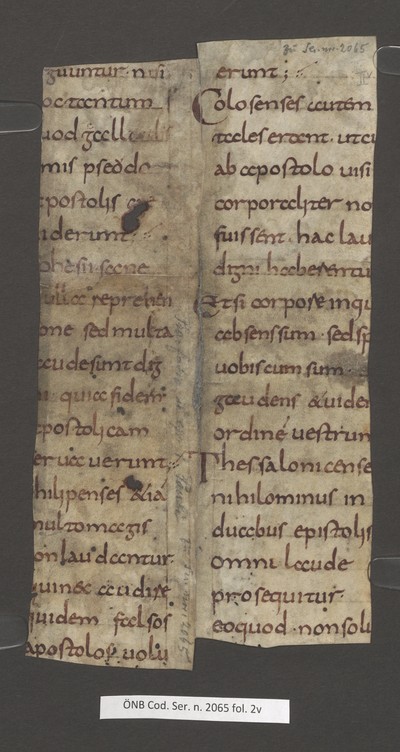 Zu Ser. n. 2065
guuntur. nisi
oc tantum
uod galla
mis pseudo
postolis
iderunt.
phesii sane
nulla repręhen
one sed multa
laude sunt dig
ni. quia fidem
apostolicam
seruauerunt.
hilipenses &ia
multo magis
onlaudantur.
quinec audire
quidem falsos
apostolos uolu
erunt;
Colosenses autem
tales erant. ut cu
ab apostolo uisi
corporaliter no
fuissent. hac lau
digni haberentu
Etsi corpore inqui
absens sum. sed sp
uobiscum sum.
gaudens &uiden
ordinē uestrum
Thessalonicense
nihilominus in
duabus epistolis
omni laude
prosequitur
eoquod. non solu
ÖNB Cod. Ser. n. 2065 fol. 2v